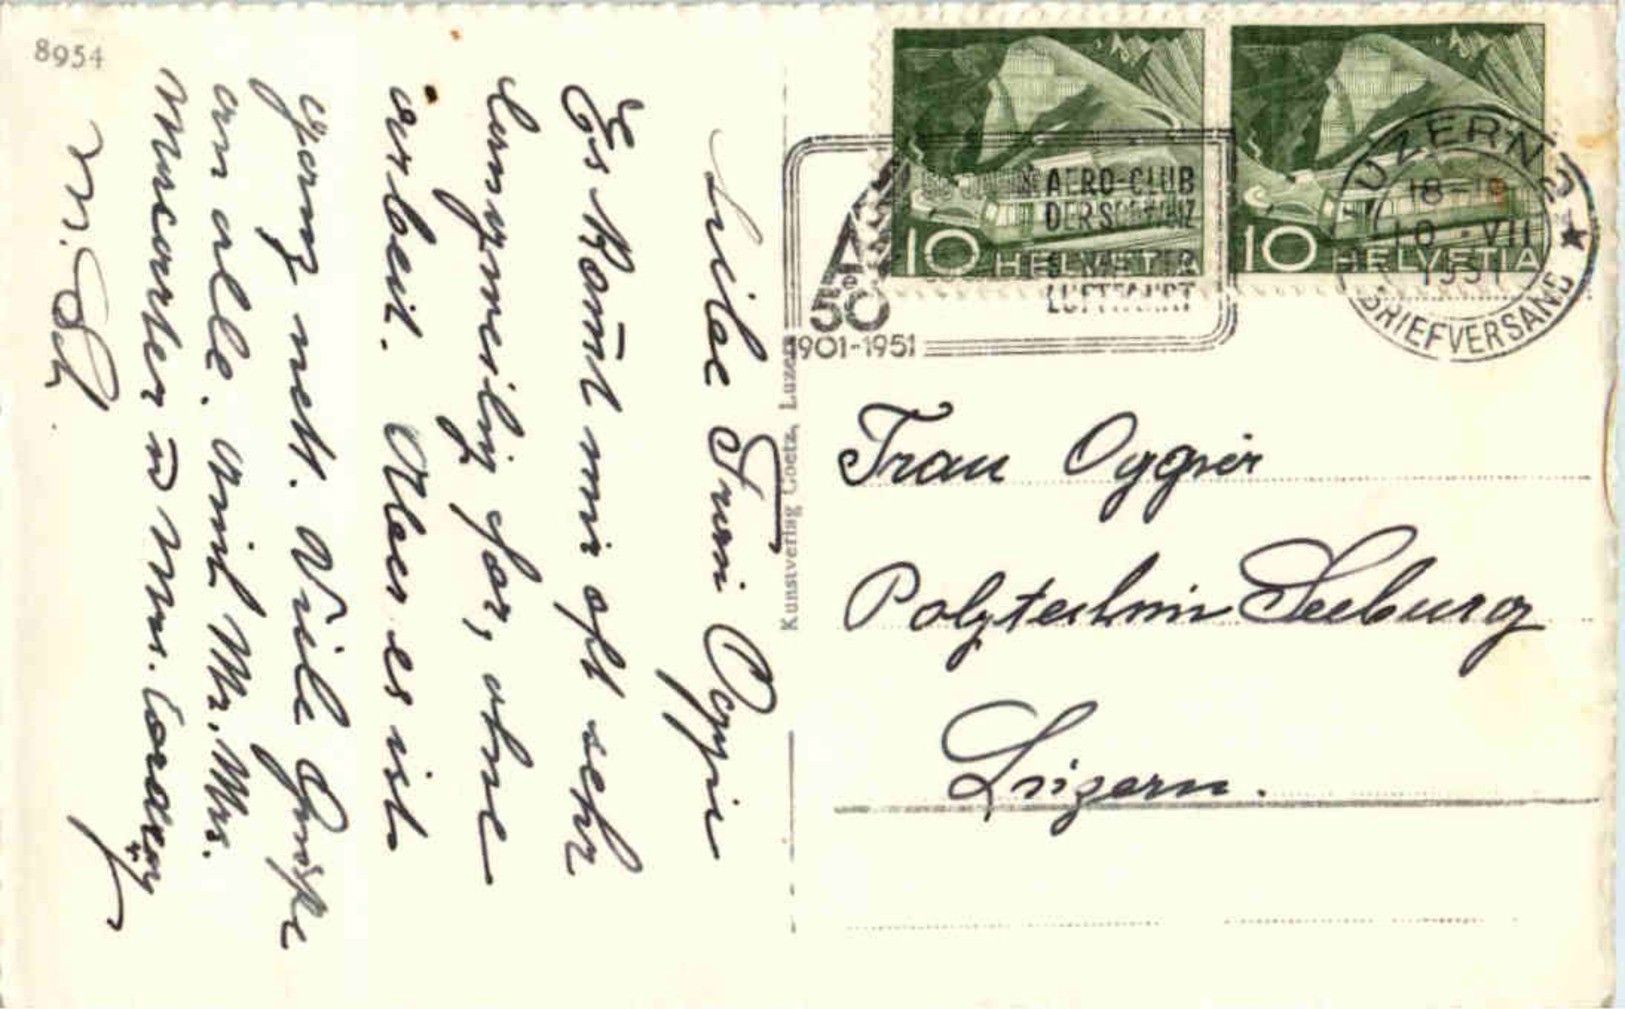 8954
Liebe Frau Oggier
Es komt mir oft sehr
langweilig for, ohne
arbeit. Aber es ist
ganz nett. Viele Grüsse
an alle. Mr. Mrs.
Mrs.
Kunstverlag Goetz, Luzern
10 HELVETIA
10 HELVETIA
AERO-CLUB
DER SCHWEIZ
LUFTFAHRT
50
1901-1951
LUZERN 2
18-19
10 VII
1951
BRIEFVERSAND
Frau Oggier
Polytechnic Seeburg
Luzern.